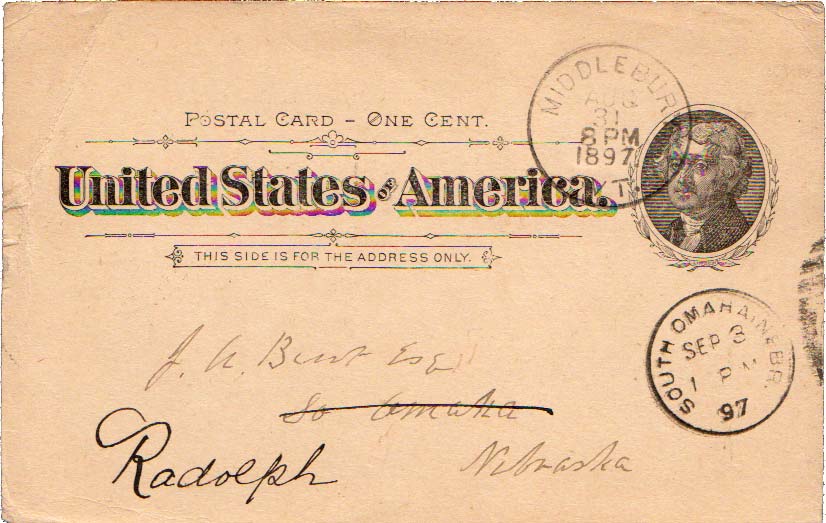 POSTAL CARD - ONE CENT.
United States OF America.
THIS SIDE IS FOR THE ADDRESS ONLY.
MIDDLEBUR
AUG
31
8 PM
1897
VT.
SOUTH OMAHA, NEBR.
SEP 3
1 PM
97
J. A. Esq
So Omaha
Radolph
Nebraska